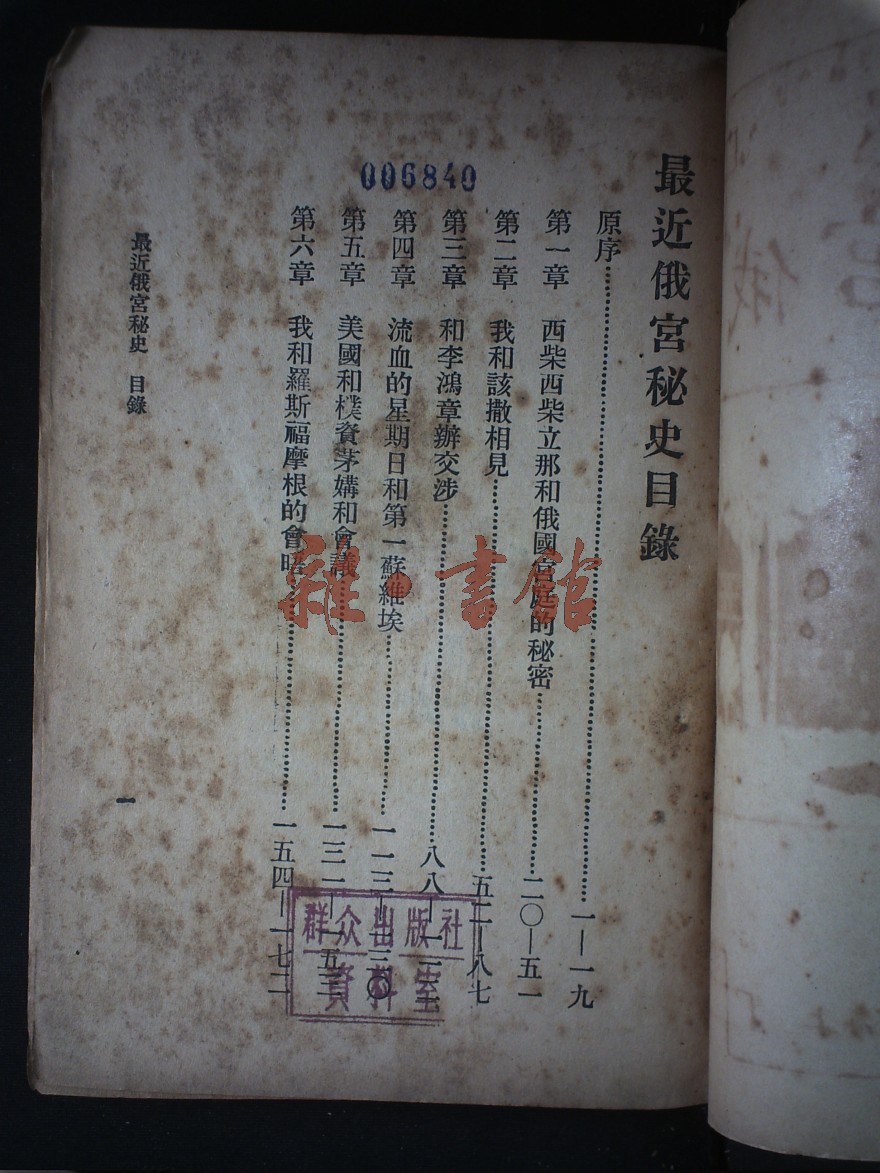 最近俄宮秘史目錄
原序……一—一九
第一章 西柴西柴立那和俄國宮庭的秘密……二〇—五一
第二章 我和該撒相見……五二—八七
第三章 和李鴻章辦交涉……八八—一一二
第四章 流血的星期日和第一蘇維埃……一一三—一三〇
第五章 美國和樸資茅媾和會議……一三一—一五三
第六章 我和羅斯福摩根的會晤……一五四—一七二
最近俄宮秘史 目錄
一
006840
群众出版社
資料室
雜·書館